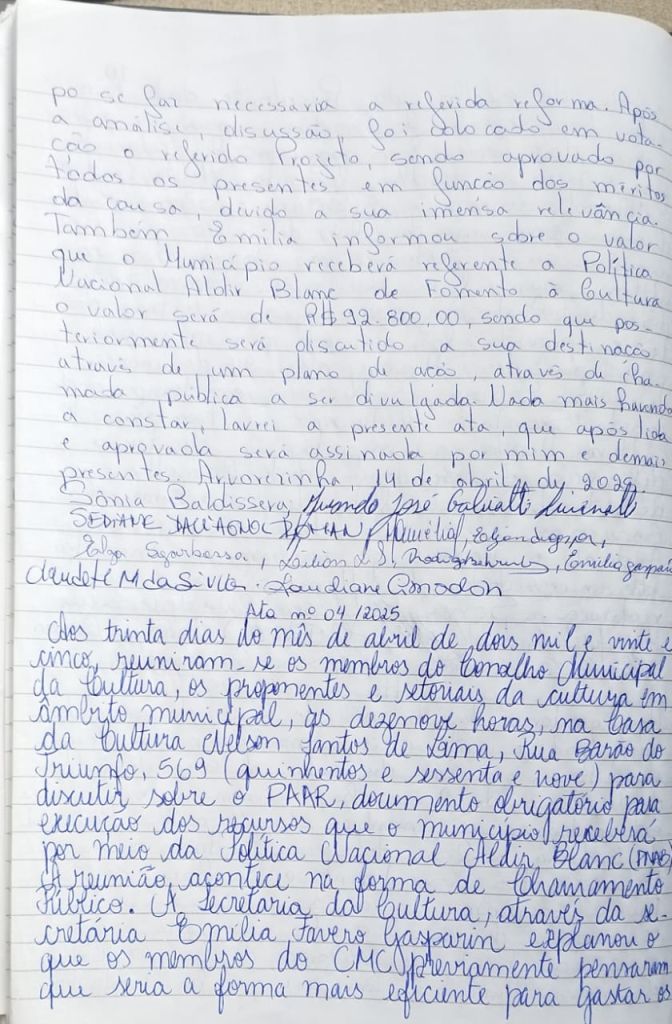 po se faz necessária a referida reforma. Após
a análise, discussão, foi colocado em vota-
ção o referido Projeto, sendo aprovado por
todos os presentes em função dos méritos
da causa, devido a sua imensa relevância.
Também Emília informou sobre o valor
que o Município receberá referente a Política
Nacional Aldir Blanc de Fomento à Cultura
o valor será de R$ 92.800,00, sendo que pos-
teriormente será discutido a sua destinação
através de um plano de ação, através de cha-
mada pública a ser divulgada. Nada mais havendo
a constar, lavrei a presente ata, que após lida
e aprovada será assinada por mim e demais
presentes. Arvorezinha, 14 de abril de
Sônia Baldissera, José
SEDIANE DALL'AGNOL ROMAN
Emilia Gaspari
Claudete M da Silva. Laudiane
Ata nº 04/2025
Aos trinta dias do mês de abril de dois mil e vinte e
cinco, reuniram-se os membros do Conselho Municipal
da Cultura, os proponentes e setoriais da cultura em
âmbito municipal, às dezenove horas, na Casa
da Cultura Nelson Santos de Lima, Rua Barão do
Triunfo, 569 (quinhentos e sessenta e nove) para
discutir sobre o PAAR, documento obrigatório para
execução dos recursos que o município receberá
por meio da Política Nacional Aldir Blanc (PNAB)
A reunião acontece na forma de Chamamento
Público. A Secretaria da Cultura, através da se-
cretária Emilia Favero Gasparin explanou o
que os membros do CMC previamente pensaram
que seria a forma mais eficiente para gastar os